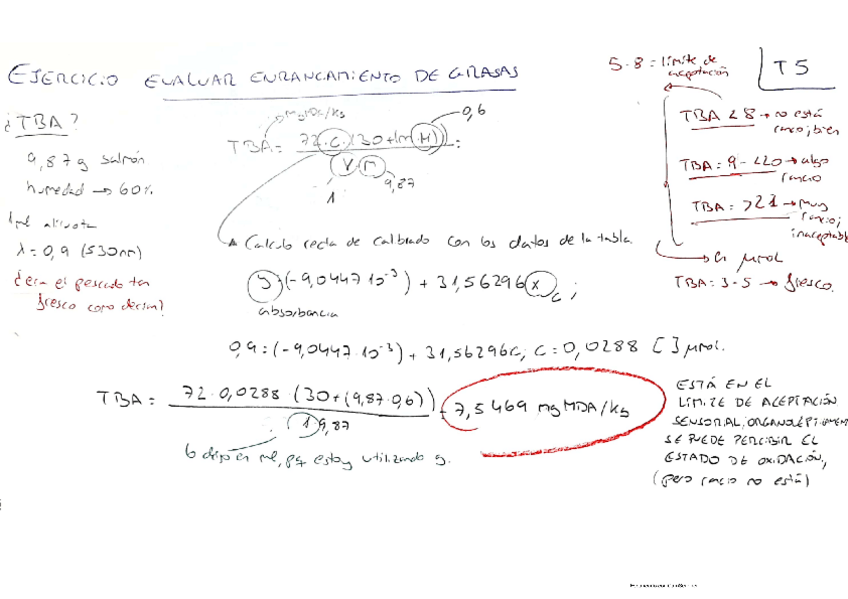 EJERCICIO EVALUAR ENRANCIAMIENTO DE GRASAS
5-8 = límite de aceptación
T5
¿TBA?
9,87g salmón
humedad → 60%
1ml alícuota
λ = 0,9 (530nm)
¿era el pescado tan
fresco como decían?
mgMDA/kg
0,6
TBA = 72·C·(30+(m·H)) :
V·m
1
9,87
TBA < 8 → no está
rancio; bien
TBA = 9-<20 → algo
rancio
TBA = >21 → muy
rancio;
inaceptable
En μmol
TBA = 3-5 → fresco.
Calculo recta de calibrado con los datos de la tabla.
y = (-9,0447·10⁻³) + 31,56296 x ;
c
absorbancia
0,9 = (-9,0447·10⁻³) + 31,56296c; c = 0,0288 [ ] μmol.
TBA = 72·0,0288·(30+(9,87·0,6)) = 7,5469 mgMDA/kg
1·9,87
lo dejo en ml, pq estoy utilizando g.
ESTÁ EN EL
LÍMITE DE ACEPTACIÓN
SENSORIAL; ORGANOLÉPTICAMENTE
SE PUEDE PERCIBIR EL
ESTADO DE OXIDACIÓN,
(pero rancio no está)